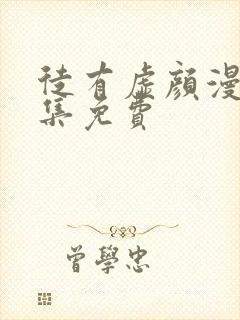 徒有虛顏漫
集免費
曾學忠